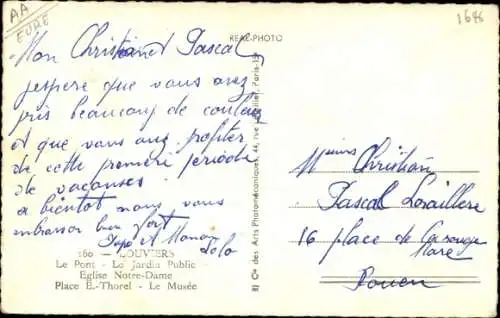 AA
EURE
1646
REAL-PHOTO
Mon Christian et Pascal
j'espere que vous avez
pris beaucoup de couleurs
et que vous avez profiter
de cette première période
de vacances.
a bientot nous vous
embrasson bien fort
Papé et Maman
Lolo
160 - LOUVIERS
Le Pont - Le Jardin Public
Eglise Notre-Dame
Place E.-Thorel - Le Musée
Cie des Arts Photomécaniques, 44, rue Paris-15
Christian
Pascal Loraillere
16 place de la Rouge
Mare
Rouen